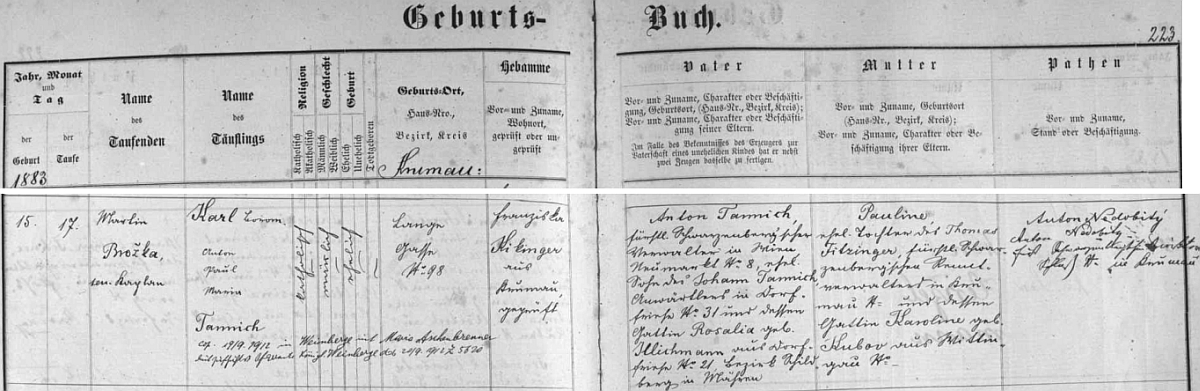 Geburts-
Buch.
223
Jahr, Monat
und
Tag
der
Geburt
der
Taufe
Name
des
Taufenden
Name
des
Täuflings
Religion
Katholisch
Akatholisch
Geschlecht
Männlich
Weiblich
Geburt
Ehelich
Unehelich
Todtgeboren
Geburts-Ort,
Haus-Nro.,
Bezirk, Kreis
Hebamme
Vor- und Zuname,
Wohnort,
geprüft oder un-
geprüft
Vater
Vor- und Zuname, Charakter oder Beschäfti-
gung, Geburtsort, (Haus-Nr., Bezirk, Kreis);
Vor- und Zuname, Charakter oder Beschäftigung
seiner Eltern.
Im Falle des Bekenntnisses des Erzeugers zur
Vaterschaft eines unehelichen Kindes hat er nebst
zwei Zeugen dasselbe zu fertigen.
Mutter
Vor- und Zuname, Geburtsort
(Haus-Nr., Bezirk, Kreis);
Vor- und Zuname, Charakter oder Be-
schäftigung ihrer Eltern.
Pathen
Vor- und Zuname,
Stand oder Beschäftigung.
1883
Krumau:
15.
17.
Martin
Brožka,
Kaplan
Karl Borom.
Anton
Paul
Maria
Tannich
cop. 12/9 1912 in Weinberge mit Marie Aschenbrenner
katholisch
männlich
ehelich
Lange
Gasse
No 98
Franziska
Kitzinger
aus
Krumau,
geprüft
Anton Tannich,
fürstl. Schwarzenberg'scher
Verwalter in Wien
Neumarkt No 8, ehel.
Sohn des Johann Tannich,
Anwärters in Dorf-
friese No 31 und dessen
Gattin Rosalia geb.
Illichmann aus Dorf-
friese No 21 Bezirk Schild-
berg in Mähren
Pauline
ehel. Tochter des Thomas
Fitzinger, fürstl. Schwar-
zenbergischen Rent-
verwalters in Kru-
mau No und dessen
Gattin Karoline geb.
Kubov aus Wittin-
gau No
Anton Nedobitý
Anton Nedobitý
Schloß No in Krumau